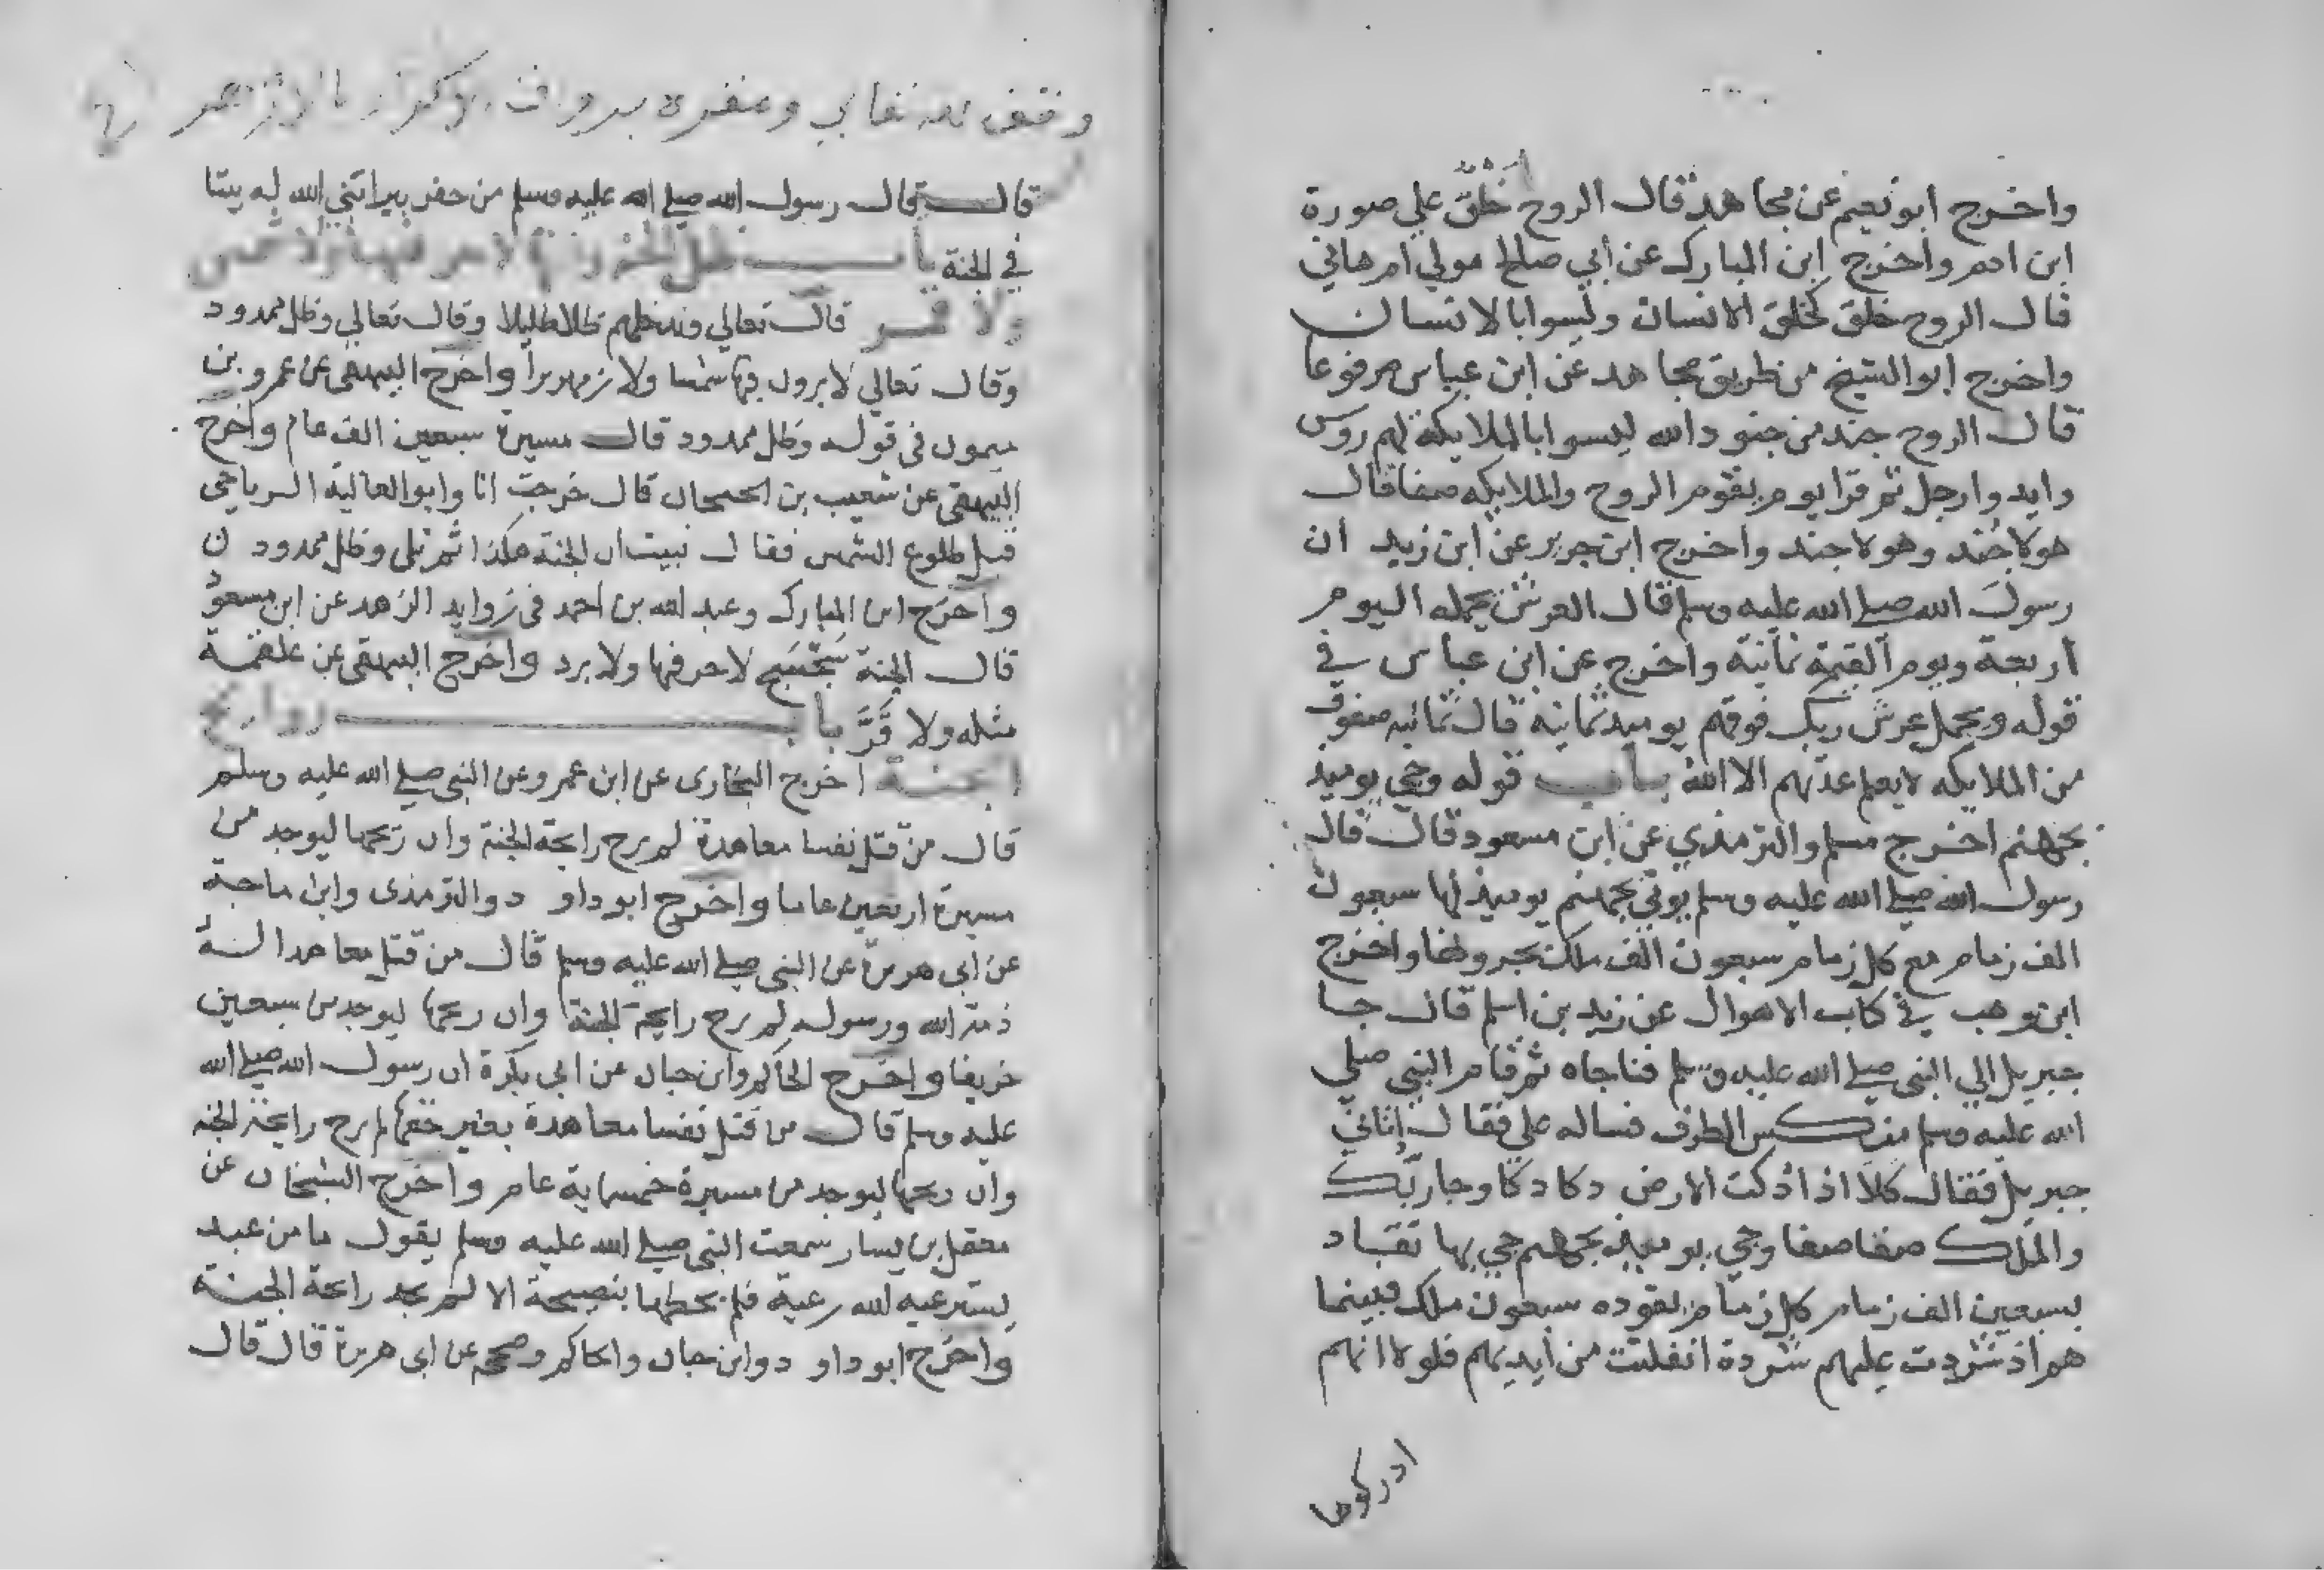 واخرج ابو نعيم عن مجاهد قال الروح خلق علي صورة
ابن ادم واخرج ابن المبارك عن ابي صالح مولي ام هاني
قال الروح خلق كخلق الانسان وليسوا بالانسان
واخرج ابو الشيخ من طريق مجاهد عن ابن عباس مرفوعا
قال الروح جند من جنود الله ليسوا بالملايكة لهم روس
وايد وارجل ثم قرا يوم يقوم الروح والملايكه صفا قال
هولا جند وهولا جند واخرج ابن جرير عن ابن زيد ان
رسول الله صلي الله عليه وسلم قال العرش يحمله اليوم
اربعة ويوم القيمة ثمانية واخرج عن ابن عباس في
قوله ويحمل عرش ربك فوقهم يوميذ ثمانية قال ثمانيه صفوف
من الملايكه لا يعلم عدتهم الا الله باب قوله وجي يوميذ
بجهنم اخرج مسلم والترمذي عن ابن مسعود قال قال
رسول الله صلي الله عليه وسلم يوتي بجهنم يوميذ لها سبعون
الف زمام مع كل زمام سبعون الف ملك يجرونها واخرج
ابن وهب في كتاب الاهوال عن زيد بن اسلم قال جا
جبريل الي النبي صلي الله عليه وسلم فناجاه ثم قام النبي صلي
الله عليه وسلم منكس الطرف فساله علي فقال اتاني
جبريل فقال كلا اذا دكت الارض دكا دكا وجا ربك
والملك صفا صفا وجي يوميذ بجهنم جي بها تقاد
بسبعين الف زمام كل زمام يقوده سبعون ملك فبينما
هم اذ شردت عليهم شردة انفلتت من ايديهم فلولا انهم
ادركوها
وقف لله تعالي ومقره برواق بالازهر
قال قال رسول الله صلي الله عليه وسلم من حفر بيرا بني الله له بيتا
في الجنة باب ظل الجنة وانها لا حر فيها ولا شمس
ولا قمر قال تعالي وندخلهم ظلا ظليلا وقال تعالي وظل ممدود
وقال تعالي لا يرون فيها شمسا ولا زمهريرا واخرج البيهقي عن عمرو بن
ميمون في قوله وظل ممدود قال مسيرة سبعين الف عام واخرج
البيهقي عن شعيب بن الحبحاب قال خرجت انا وابو العالية الرياحي
قبل طلوع الشمس فقال نبيت ان الجنة هكذا ثم تلي وظل ممدود
واخرج ابن المبارك وعبد الله بن احمد في زوايد الزهد عن ابن مسعود
قال الجنة سجسج لا حر فيها ولا برد واخرج البيهقي عن علقمة
مثله ولا قر باب روايح
الجنة اخرج البخارى عن ابن عمرو عن النبي صلي الله عليه وسلم
قال من قتل نفسا معاهدة لم يرح رايحة الجنة وان ريحها ليوجد من
مسيرة اربعين عاما واخرج ابو داود والترمذى وابن ماجة
عن ابى هريرة عن النبي صلي الله عليه وسلم قال من قتل معاهدا له
ذمة الله ورسوله لم يرح رايحة الجنة وان ريحها ليوجد من سبعين
خريفا واخرج الحاكم وابن حبان عن ابي بكرة ان رسول الله صلي الله
عليه وسلم قال من قتل نفسا معاهدة بغير حقها لم يرح رايحة الجنة
وان ريحها ليوجد من مسيرة خمسماية عام واخرج الشيخان عن
معقل بن يسار سمعت النبي صلي الله عليه وسلم يقول ما من عبد
يسترعيه الله رعية فلم يحطها بنصيحة الا لم يجد رائحة الجنة
واخرج ابو داود وابن حبان والحاكم وصححه عن ابي هريرة قال قال